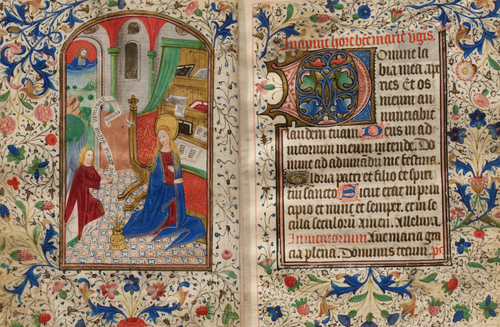 Incipiut hore bte marie v͛gis.
Domine la
bia mea ape
ries et os
meum an
nunciabit
laudem tuam Deus in ad
iutorium meum intende. Do
mine ad adiuvandū me festina
Gloria patri et filio et spiri
tui sancto Sicut erat in prin
cipio et nunc et semper. et in se
cula seculorum amen. Alleluia
Invitatorium Ave maria gra
cia plena. Dominus tecum. ps